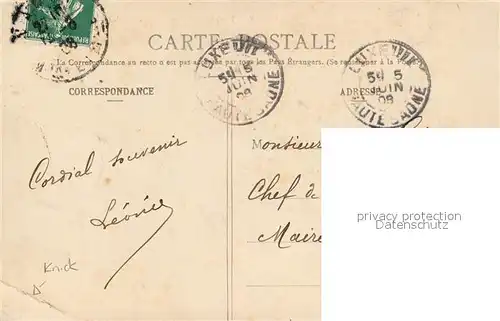 CARTE POSTALE
La Correspondance au recto n'est pas acceptée par tous les Pays Étrangers. (Se renseigner à la Poste)
CORRESPONDANCE
ADRESSE
LUXEUIL
5 JUIN 08
HAUTE-SAONE
LUXEUIL
5 JUIN 08
HAUTE-SAONE
Monsieur
Cordial souvenir
Chef de
Maire
Knick
privacy protection
Datenschutz